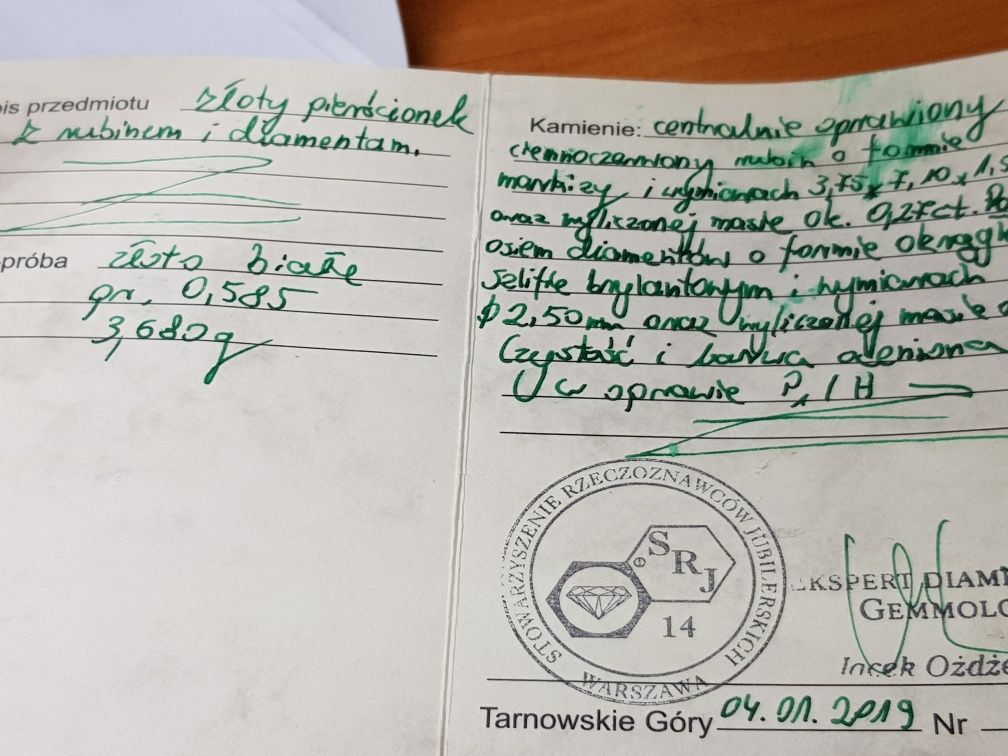 is przedmiotu złoty pierścionek
z rubinem i diamentam.
próba złoto białe
pr. 0,585
3,680g
Kamienie: centralnie oprawiony
ciemnoczerwony rubin o formie
markizy i wymiarach 3,75 x 7,10 x 1,5
oraz wyliczonej masie ok. 0,27ct.
osiem diamentów o formie okrągłe
szlifie brylantowym i wymiarach
ϕ 2,50 mm oraz wyliczonej masie
Czystość i barwa oceniona
w oprawie P1 / H
STOWARZYSZENIE RZECZOZNAWCÓW JUBILERSKICH
SRJ
14
WARSZAWA
EKSPERT DIAM
GEMMOLO
Jacek Ożdże
Tarnowskie Góry 04.01.2019 Nr